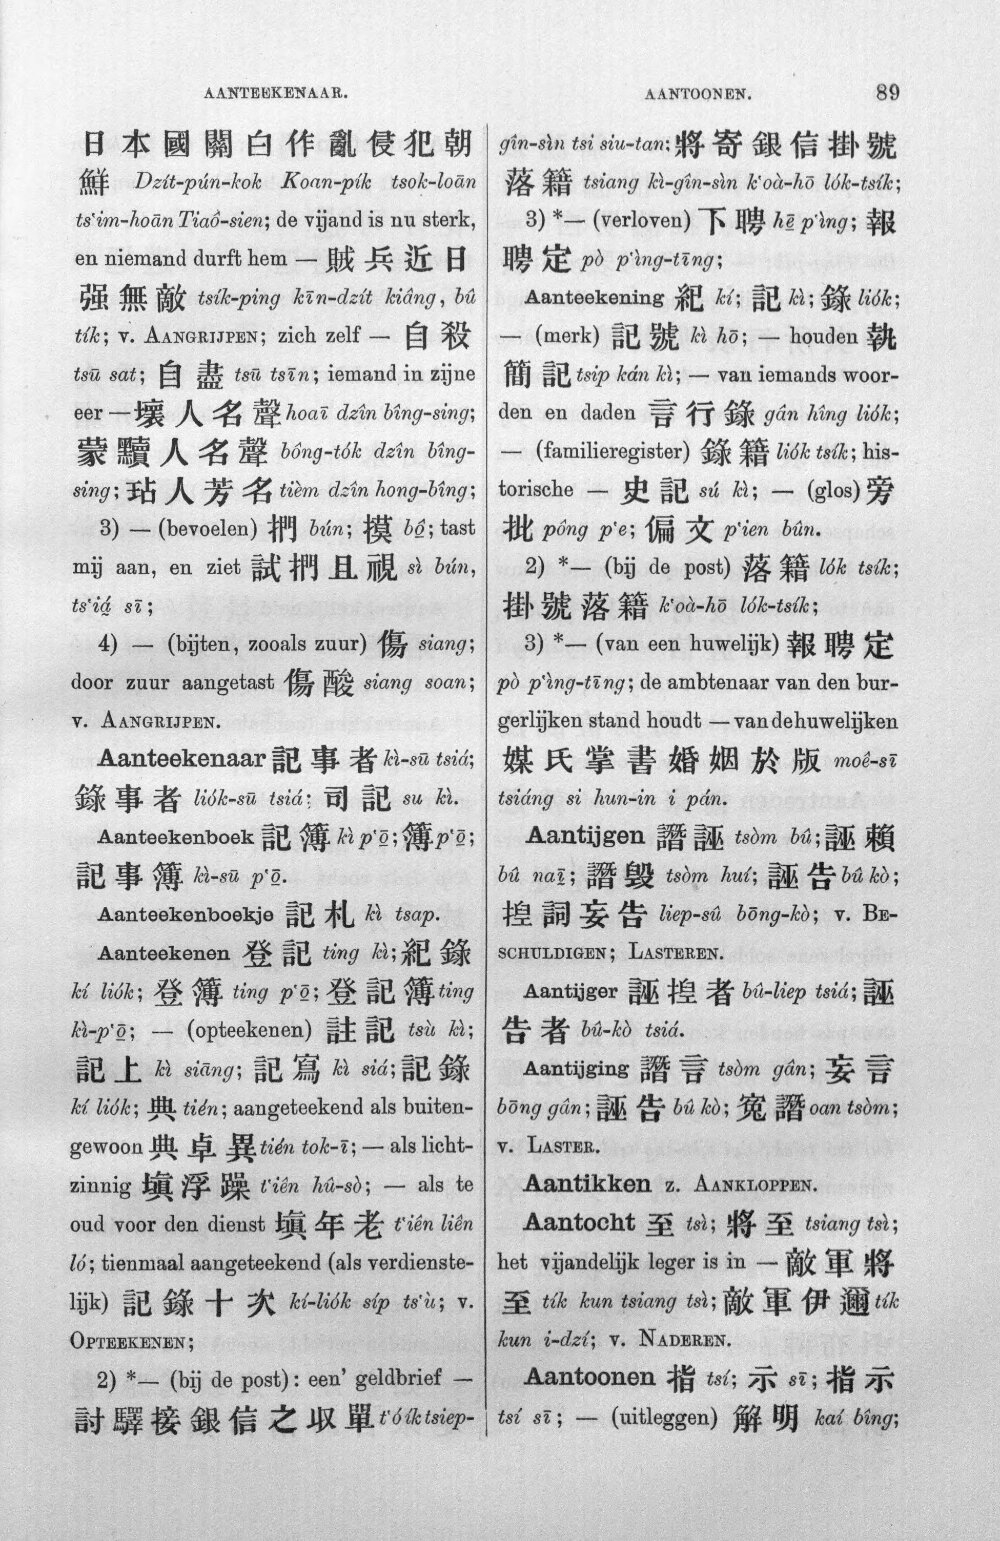 AANTEEKENAAR.
AANTOONEN.
89
日本國關白作亂侵犯朝
鮮 Dzít-pún-kok Koan-pík tsok-loān
ts‘im-hoān Tiaô-sien; de vijand is nu sterk,
en niemand durft hem — 賊兵近日
强無敵 tsík-ping kīn-dzít kiâng, bû
tík; v. AANGRIJPEN; zich zelf — 自殺
tsū sat; 自盡 tsū tsīn; iemand in zijne
eer — 壞人名聲 hoaī dzîn bîng-sing;
蒙黷人名聲 bông-tók dzîn bîng-
sing; 玷人芳名 tièm dzîn hong-bîng;
3) — (bevoelen) 捫 bún; 摸 bô͘; tast
mij aan, en ziet 試捫且視 sì bún,
ts‘iá sī;
4) — (bijten, zooals zuur) 傷 siang;
door zuur aangetast 傷酸 siang soan;
v. AANGRIJPEN.
Aanteekenaar 記事者 kì-sū tsiá;
錄事者 liók-sū tsiá; 司記 su kì.
Aanteekenboek 記簿 kì p‘ō͘; 簿 p‘ō͘;
記事簿 kì-sū p‘ō͘.
Aanteekenboekje 記札 kì tsap.
Aanteekenen 登記 ting kì; 紀錄
kí liók; 登簿 ting p‘ō͘; 登記簿 ting
kì-p‘ō͘; — (opteekenen) 註記 tsù kì;
記上 kì siāng; 記寫 kì siá; 記錄
kí liók; 典 tién; aangeteekend als buiten-
gewoon 典卓異 tién tok-ī; — als licht-
zinnig 塡浮躁 t‘iên hû-sò; — als te
oud voor den dienst 塡年老 t‘iên liên
ló; tienmaal aangeteekend (als verdienste-
lijk) 記錄十次 kí-liók síp ts‘ù; v.
OPTEEKENEN;
2) *— (bij de post): een’ geldbrief —
討驛接銀信之収單 t‘ó ík tsiep-
gîn-sìn tsi siu-tan; 將寄銀信掛號
落籍 tsiang kì-gîn-sìn k‘oà-hō lók-tsík;
3) *— (verloven) 下聘 hē p‘ìng; 報
聘定 pò p‘ìng-tīng;
Aanteekening 紀 kí; 記 kì; 錄 liók;
— (merk) 記號 kì hō; — houden 執
簡記 tsip kán kì; — van iemands woor-
den en daden 言行錄 gân hîng liók;
— (familieregister) 錄籍 liók tsík; his-
torische — 史記 sú kì; — (glos) 旁
批 pông p‘e; 偏文 p‘ien bûn.
2) *— (bij de post) 落籍 lók tsík;
掛號落籍 k‘oà-hō lók-tsík;
3) *— (van een huwelijk) 報聘定
pò p‘ìng-tīng; de ambtenaar van den bur-
gerlijken stand houdt — van de huwelijken
媒氏掌書婚姻於版 moê-sī
tsiáng si hun-in i pán.
Aantijgen 譖誣 tsòm bû; 誣賴
bû naī; 譖毁 tsòm huí; 誣告 bû kò;
揑詞妄告 liep-sû bōng-kò; v. BE-
SCHULDIGEN; LASTEREN.
Aantijger 誣揑者 bû-liep tsiá; 誣
告者 bû-kò tsiá.
Aantijging 譖言 tsòm gân; 妄言
bōng gân; 誣告 bû kò; 冤譖 oan tsòm;
v. LASTER.
Aantikken z. AANKLOPPEN.
Aantocht 至 tsì; 將至 tsiang tsì;
het vijandelijk leger is in — 敵軍將
至 tík kun tsiang tsì; 敵軍伊邇 tík
kun i-dzí; v. NADEREN.
Aantoonen 指 tsí; 示 sī; 指示
tsí sī; — (uitleggen) 解明 kaí bîng;